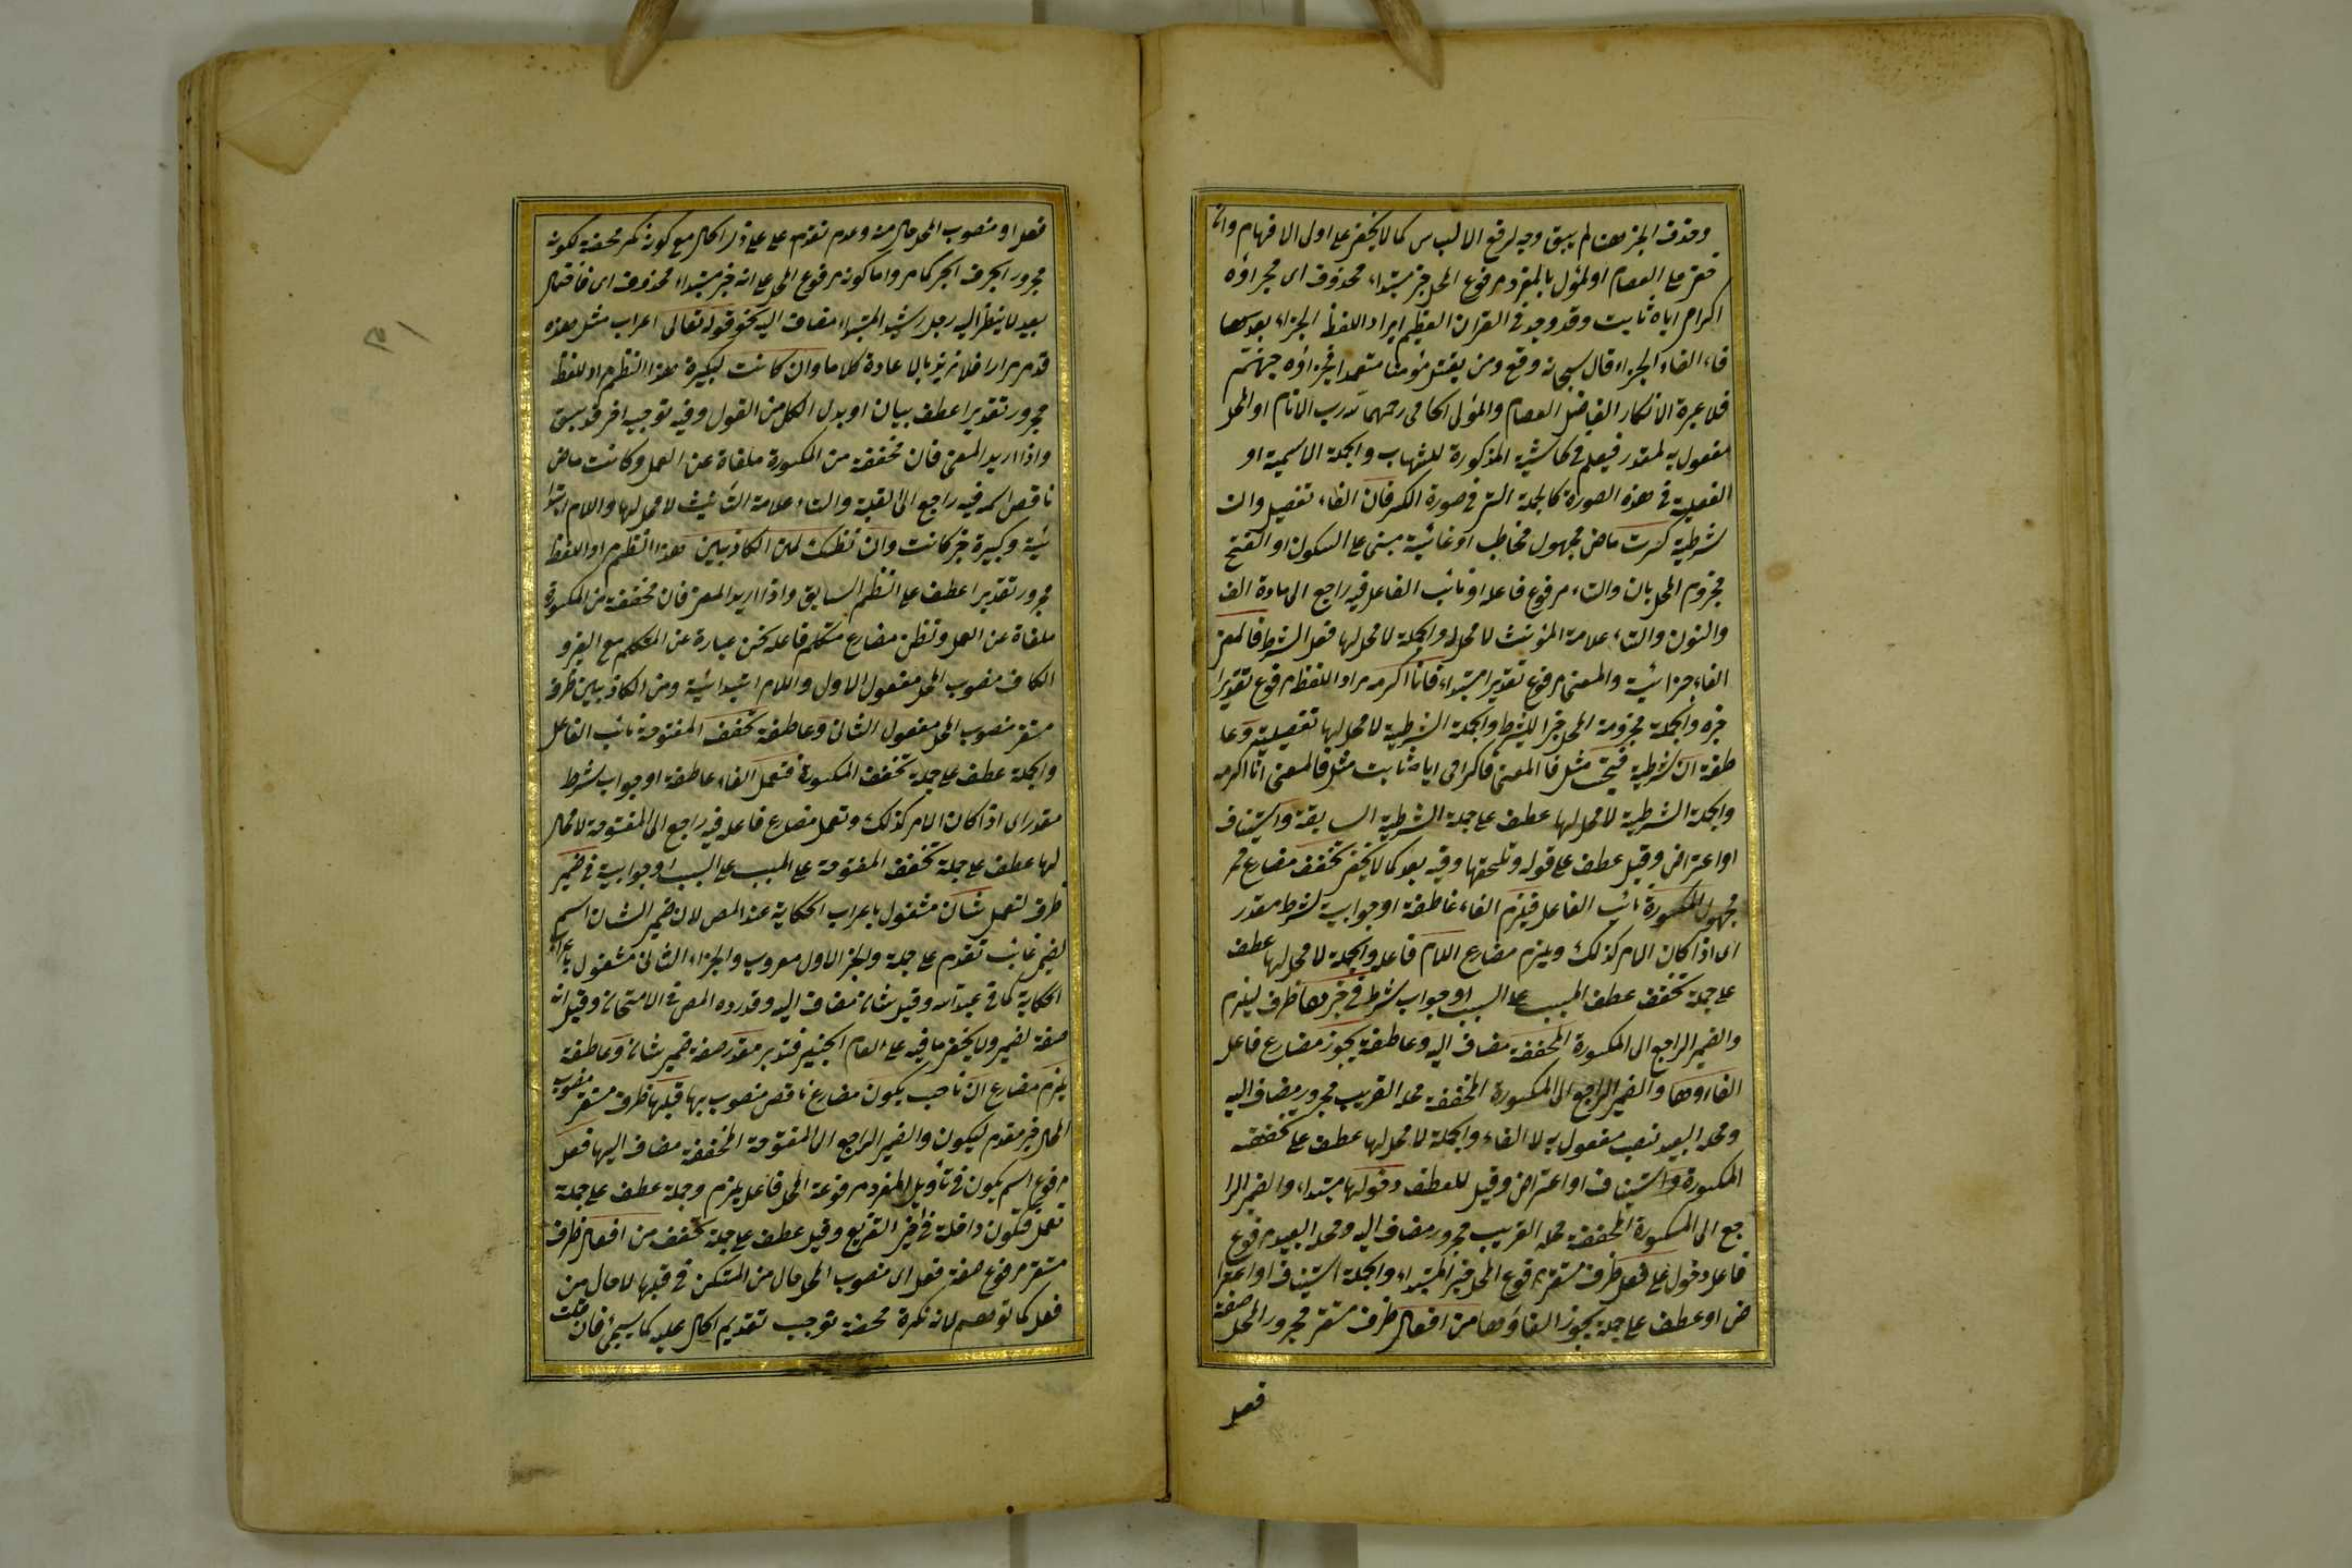 وحذف الجزء هنا لم يبق وجه لرفع الالتباس كما لا يخفى على اولى الافهام وان
اكرامى اياه ثابت وقد وجد فى القران العظيم ايراد اللفظ الجزاء بعد
فاء الجزاء قال سبحانه وقع ومن يقتل مؤمنا متعمدا فجزاؤه جهنم
فلا عبرة الانكار الفاضل العصام والمولى الجامى رحمهما رب الانام او المحل
مفعول به لمقدر فيعلم فى حاشية المذكورة للشهاب والجملة الاسمية او
الفعلية فى هذه الصورة كالجملة التى فى صورة الكسر فان الفاء تفصيل وان
شرطية كسرت ماض مجهول مخاطب او غائبة مبنى على السكون او الفتح
مجزوم المحل بان والتاء مرفوع فاعله او نائب الفاعل فيه راجع الى مادة الف
والنون والتاء علامة المؤنث لا محل له والجملة لا محل لها فعل الشرط فالمعنى
الفاء جزائية والمعنى مرفوع تقديرا مبتداء فانا اكرمه مراد اللفظ مرفوع تقديرا
خبره والجملة مجزومة المحل جزا للشرط والجملة الشرطية لا محل لها تفصيلية وعا
طفة ان شرطية فتحت مثل فالمعنى فاكرامى اياه ثابت مثل فالمعنى انا اكرمه
والجملة الشرطية لا محل لها عطف على جملة الشرطية السابقة واستيناف
او اعتراض وقيل عطف على قوله وتلحقها وفيه بعد كما لا يخفى تخفف مضارع
مجهول المكسورة نائب الفاعل فيلزم الفاء عاطفة او جوابية لشرط مقدر
اى اذا كان الامر كذلك ويلزم مضارع اللام فاعله والجملة لا محل لها عطف
على جملة تخفف عطف المسبب على السبب او جواب شرط فى خبرها ظرف ليلزم
والضمير الراجع الى المكسورة المخففة مضاف اليه وعاطفة يجوز مضارع فاعل
الغاؤها والضمير الراجع الى المكسورة المخففة محله القريب مجرور مضاف اليه
ومحله البعيد نصب مفعول به لالغاء والجملة لا محل لها عطف على تخفف
المكسورة واستيناف او اعتراض وقيل للعطف دخولها مبتداء والضمير الرا
جع الى المكسورة المخففة محله القريب مجرور مضاف اليه ومحله البعيد مرفوع
فاعل دخول على فعل ظرف مستقر مرفوع المحل خبر المبتداء والجملة استيناف او اعترا
ض او عطف على جملة يجوز الغاؤها من افعال ظرف مستقر مجرور المحل صفة
فعل
فعل او منصوب المحل حال منه وعدم تقدم على ذى الحال مع كونه نكرة محضة لكونه
مجرور الحرف الجر كما مر واما كونه مرفوع المحل على انه خبر مبتداء محذوف اى
بعيد لا ينظر اليه رجل رشيد المبتداء مضاف اليه نحو قوله تعالى اعراب مثل هذه
قد مر مرارا فلا نزيد بالاعادة كلاما وان كانت لكبيرة هذا النظم مراد اللفظ
مجرور تقديرا عطف بيان او بدل الكل من القول وفيه توجيه اخر قد سبق
واذا اريد المعنى فان مخففة من المكسورة ملغاة عن العمل وكانت ماض
ناقص اسمه فيه راجع الى القبلة والتاء علامة التأنيث لا محل لها واللام ابتدا
ئية وكبيرة خبر كانت وان نظنك لمن الكاذبين هذا النظم مراد اللفظ
مجرور تقديرا عطف على النظم السابق واذا اريد المعنى فان مخففة من المكسورة
ملغاة عن العمل ونظن مضارع متكلم فاعله نحن عبارة عن المتكلم مع الغير و
الكاف منصوب المحل مفعول الاول واللام ابتدائية ومن الكاذبين ظرف
مستقر منصوب المحل مفعول الثانى وعاطفة تخفف المفتوحة نائب الفاعل
والجملة عطف على جملة تخفف المكسورة فتعمل الفاء عاطفة او جواب شرط
مقدر اى اذا كان الامر كذلك وتعمل مضارع فاعله فيه راجع الى المفتوحة لا محل
لها عطف على جملة تخفف المفتوحة على المسبب على السبب او جوابية فى ضمير
ظرف لتعمل شان مشغول باعراب الحكاية عند المص لان ضمير الشان اسم
لضمير غائب تقدم على جملة والجزء الاول معرب والجزاء الثانى مشغول باعراب
الحكاية كما فى عبد الله وقيل شان مضاف اليه وقد رده المص فى الامتحان وقيل انه
صفة لضمير ولا يخفى ما فيه على مقدر صفة ضمير شان وعاطفة
يلزم مضارع ان ناصب يكون مضارع ناقص منصوب بها قبلها ظرف مستقر منصوب
المحل خبر مقدم ليكون والضمير الراجع الى المفتوحة المخففة مضاف اليها فعل
مرفوع اسم يكون فى تأويل المفرد مرفوعة المحل فاعل يلزم وجملة عطف على جملة
تعمل فتكون داخلة فى حيز التفريع وقيل عطف على جملة تخفف من افعال ظرف
مستقر مرفوع صفة فعل اى منصوب المحل حال من المستكن فى قبلها لا حال من
فعل كما توهم لانه نكرة محضة توجب تقديم الحال عليه كما سيجئ فان قلت